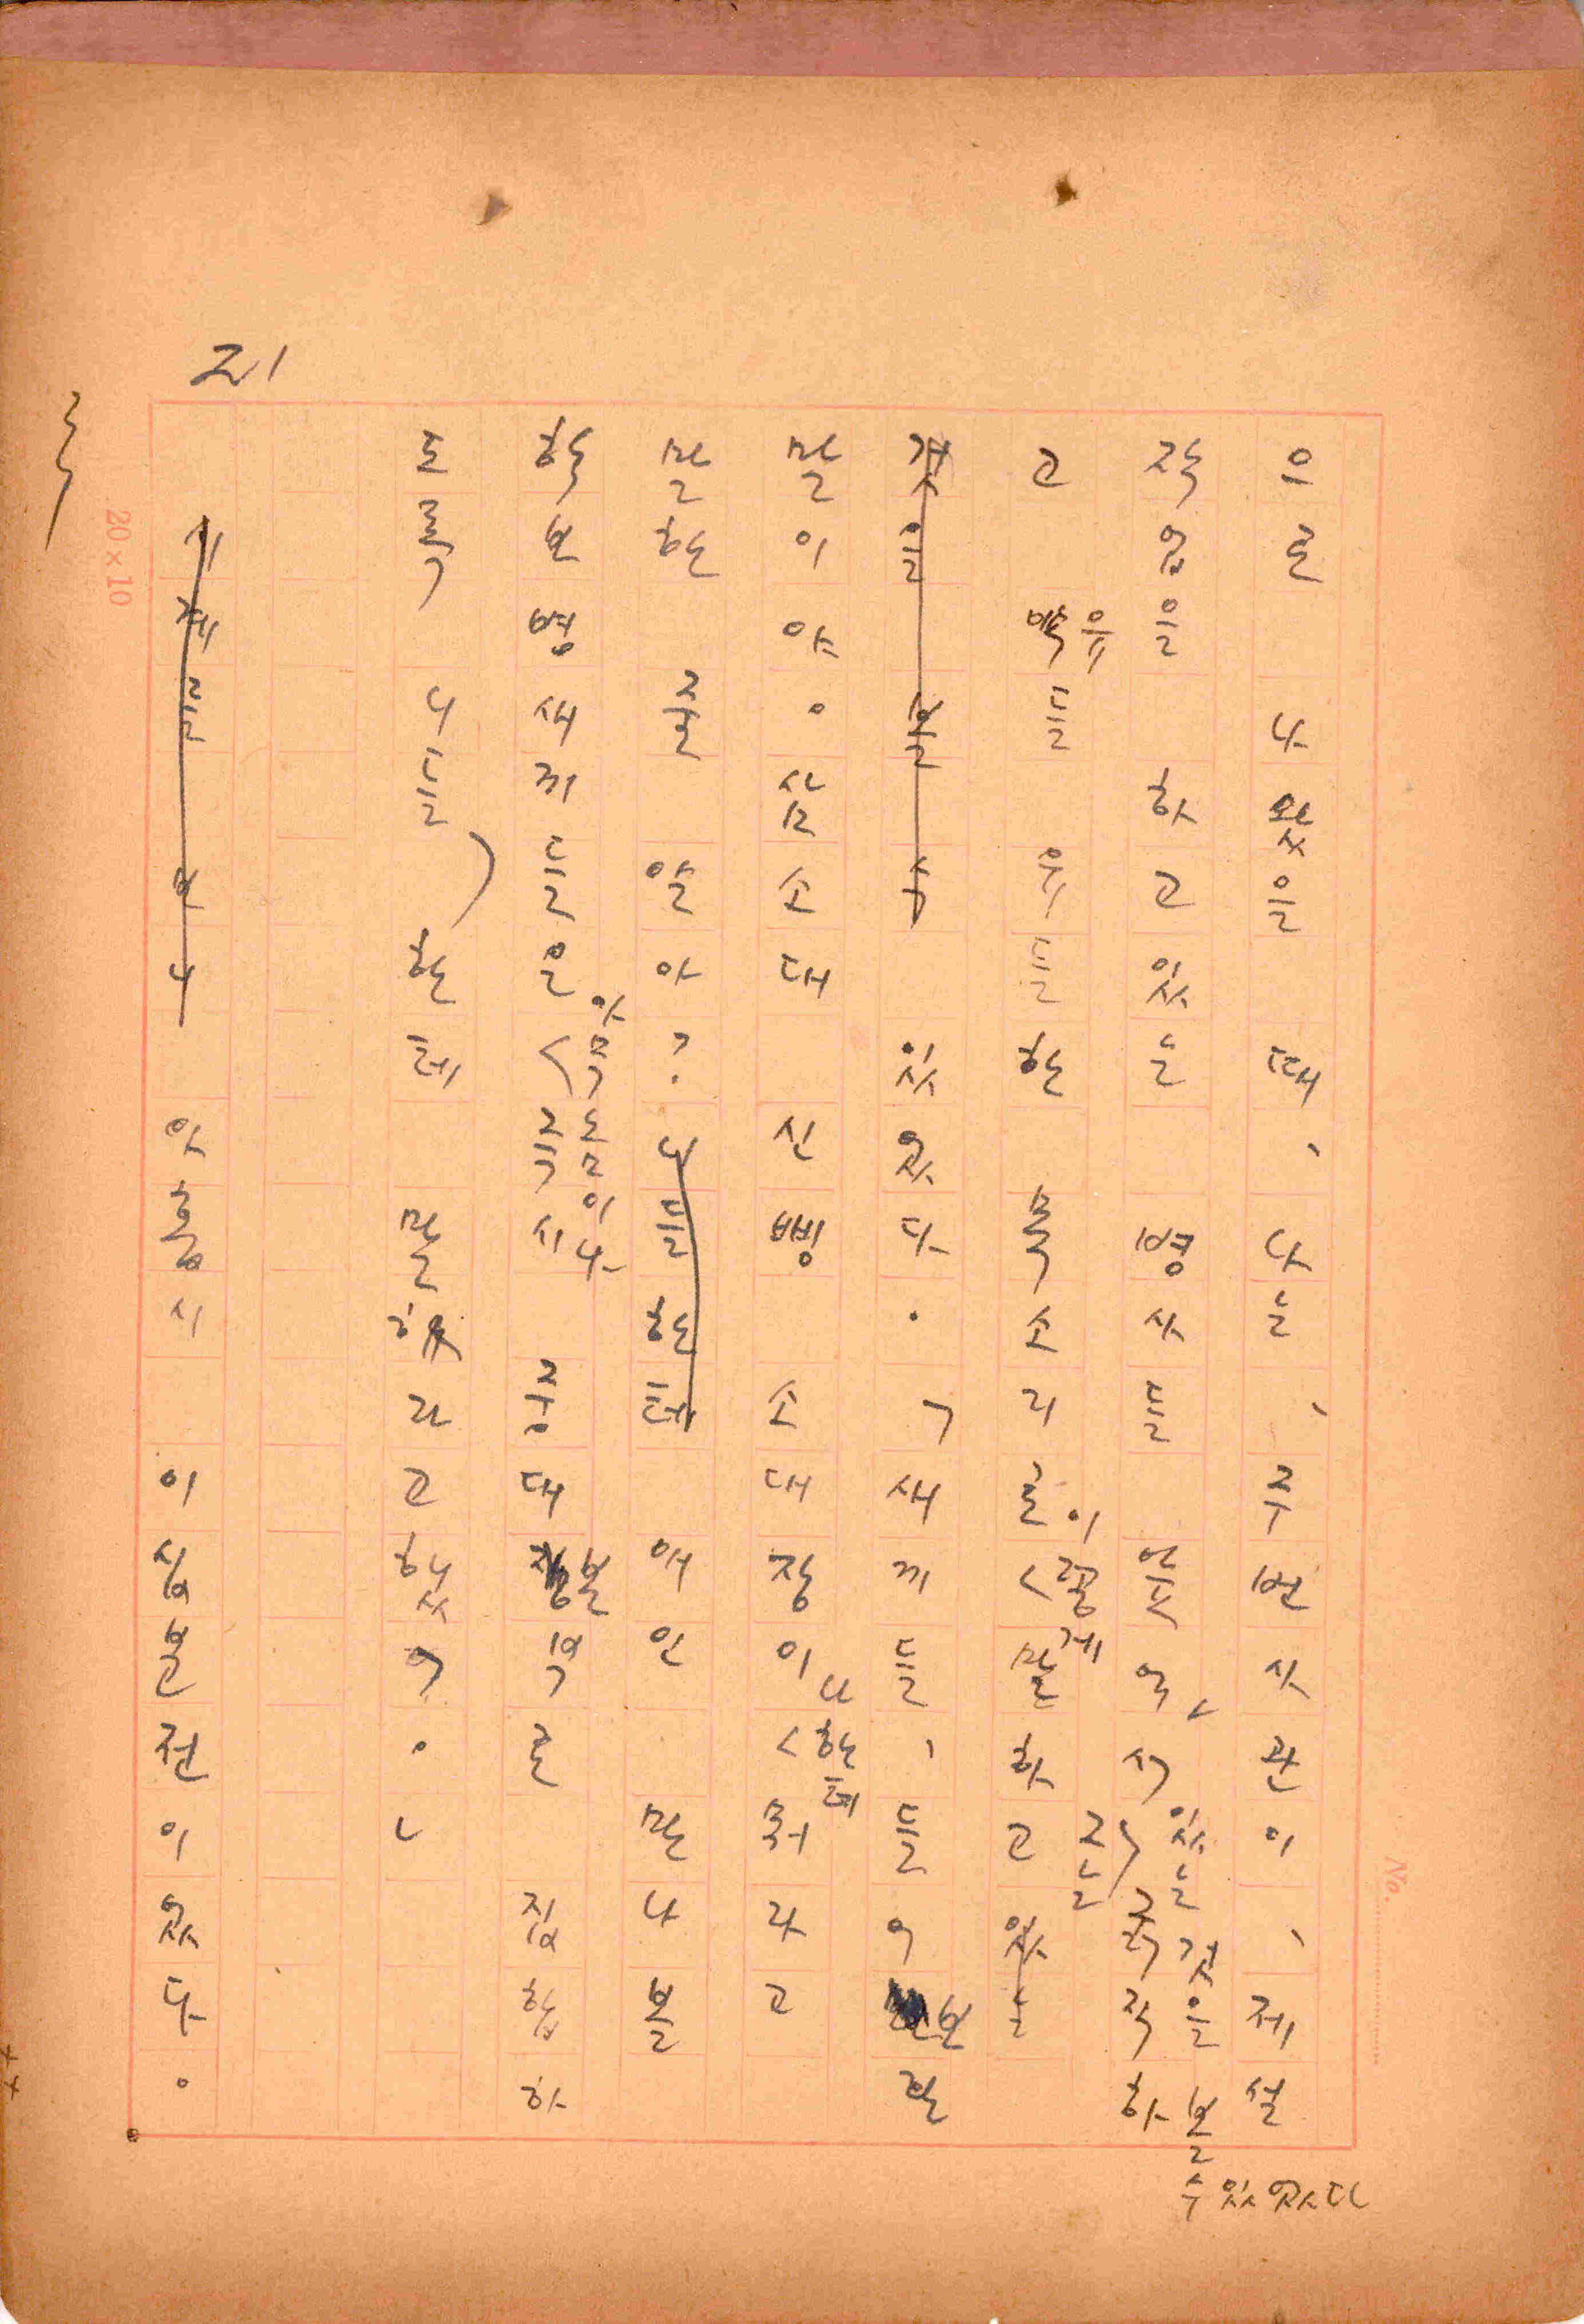 21
으로 나왔을 때, 나는, 주번사관이, 제설
작업을 하고 있는 병사들 앞에 서 있는 것을 볼 수 있었다
고 그는 유들유들한 목소리로 이렇게 말하고 있
것을 볼 수 있었다. 「새끼들, 들어 본관
말이야. 삼소대 신삥 소대장이 너한테 뭐라고
말한 줄 알아? 니들한테 애인 만나볼
학보병 새끼들은 아무도 모이나 즉시 중대 본부로 집합하
도록 니들한테 말하라고 했어.」
시계를 보니 아홉시 이십분전이었다.
20×10
No.